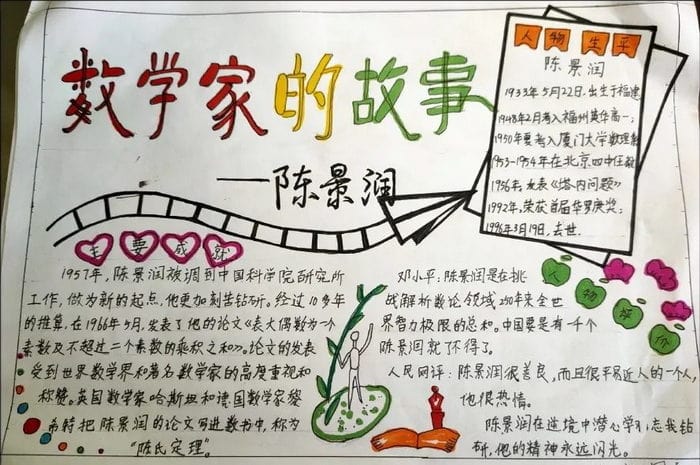 数学家的故事
——陈景润
人物生平
陈景润
1933年5月22日.出生于福建
1948年2月考入福州英华高一;
1950年夏考入厦门大学数理
1953-1954年在北京四中任教
1956年,发表《塔内问题》
1992年,荣获首届华罗庚奖;
1996年3月19日,去世.
主要成就
1957年,陈景润被调到中国科学院研究所
工作,做为新的起点,他更加刻苦钻研。经过10多年
的推算,在1966年5月,发表了他的论文《表大偶数为一个
素数及不超过二个素数的乘积之和》。论文的发表
受到世界数学界和著名数学家的高度重视和
称赞。英国数学家哈斯坦和德国数学家黎
希特把陈景润的论文写进数书中,称为
“陈氏定理”。
人物评价
邓小平:陈景润是在挑
战解析数论领域250年来全世
界智力极限的总和。中国要是有一千个
陈景润就了不得了。
人民网评:陈景润很善良,而且很平易近人的一个人,
也很热情。
陈景润在逆境中潜心学习,忘我钻
研,他的精神永远闪光。